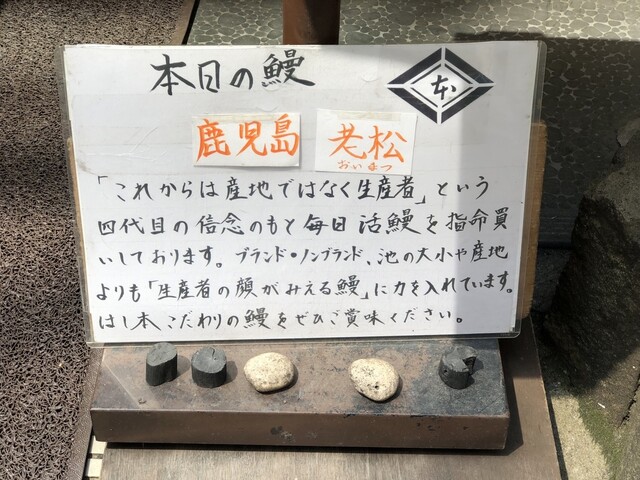 本日の鰻
本
鹿児島 老松
おいまつ
「これからは産地ではなく生産者」という
四代目の信念のもと毎日活鰻を指命買
いしております。ブランド・ノンブランド、池の大小や産地
よりも「生産者の顔がみえる鰻」に力を入れています。
はし本こだわりの鰻をぜひご賞味ください。